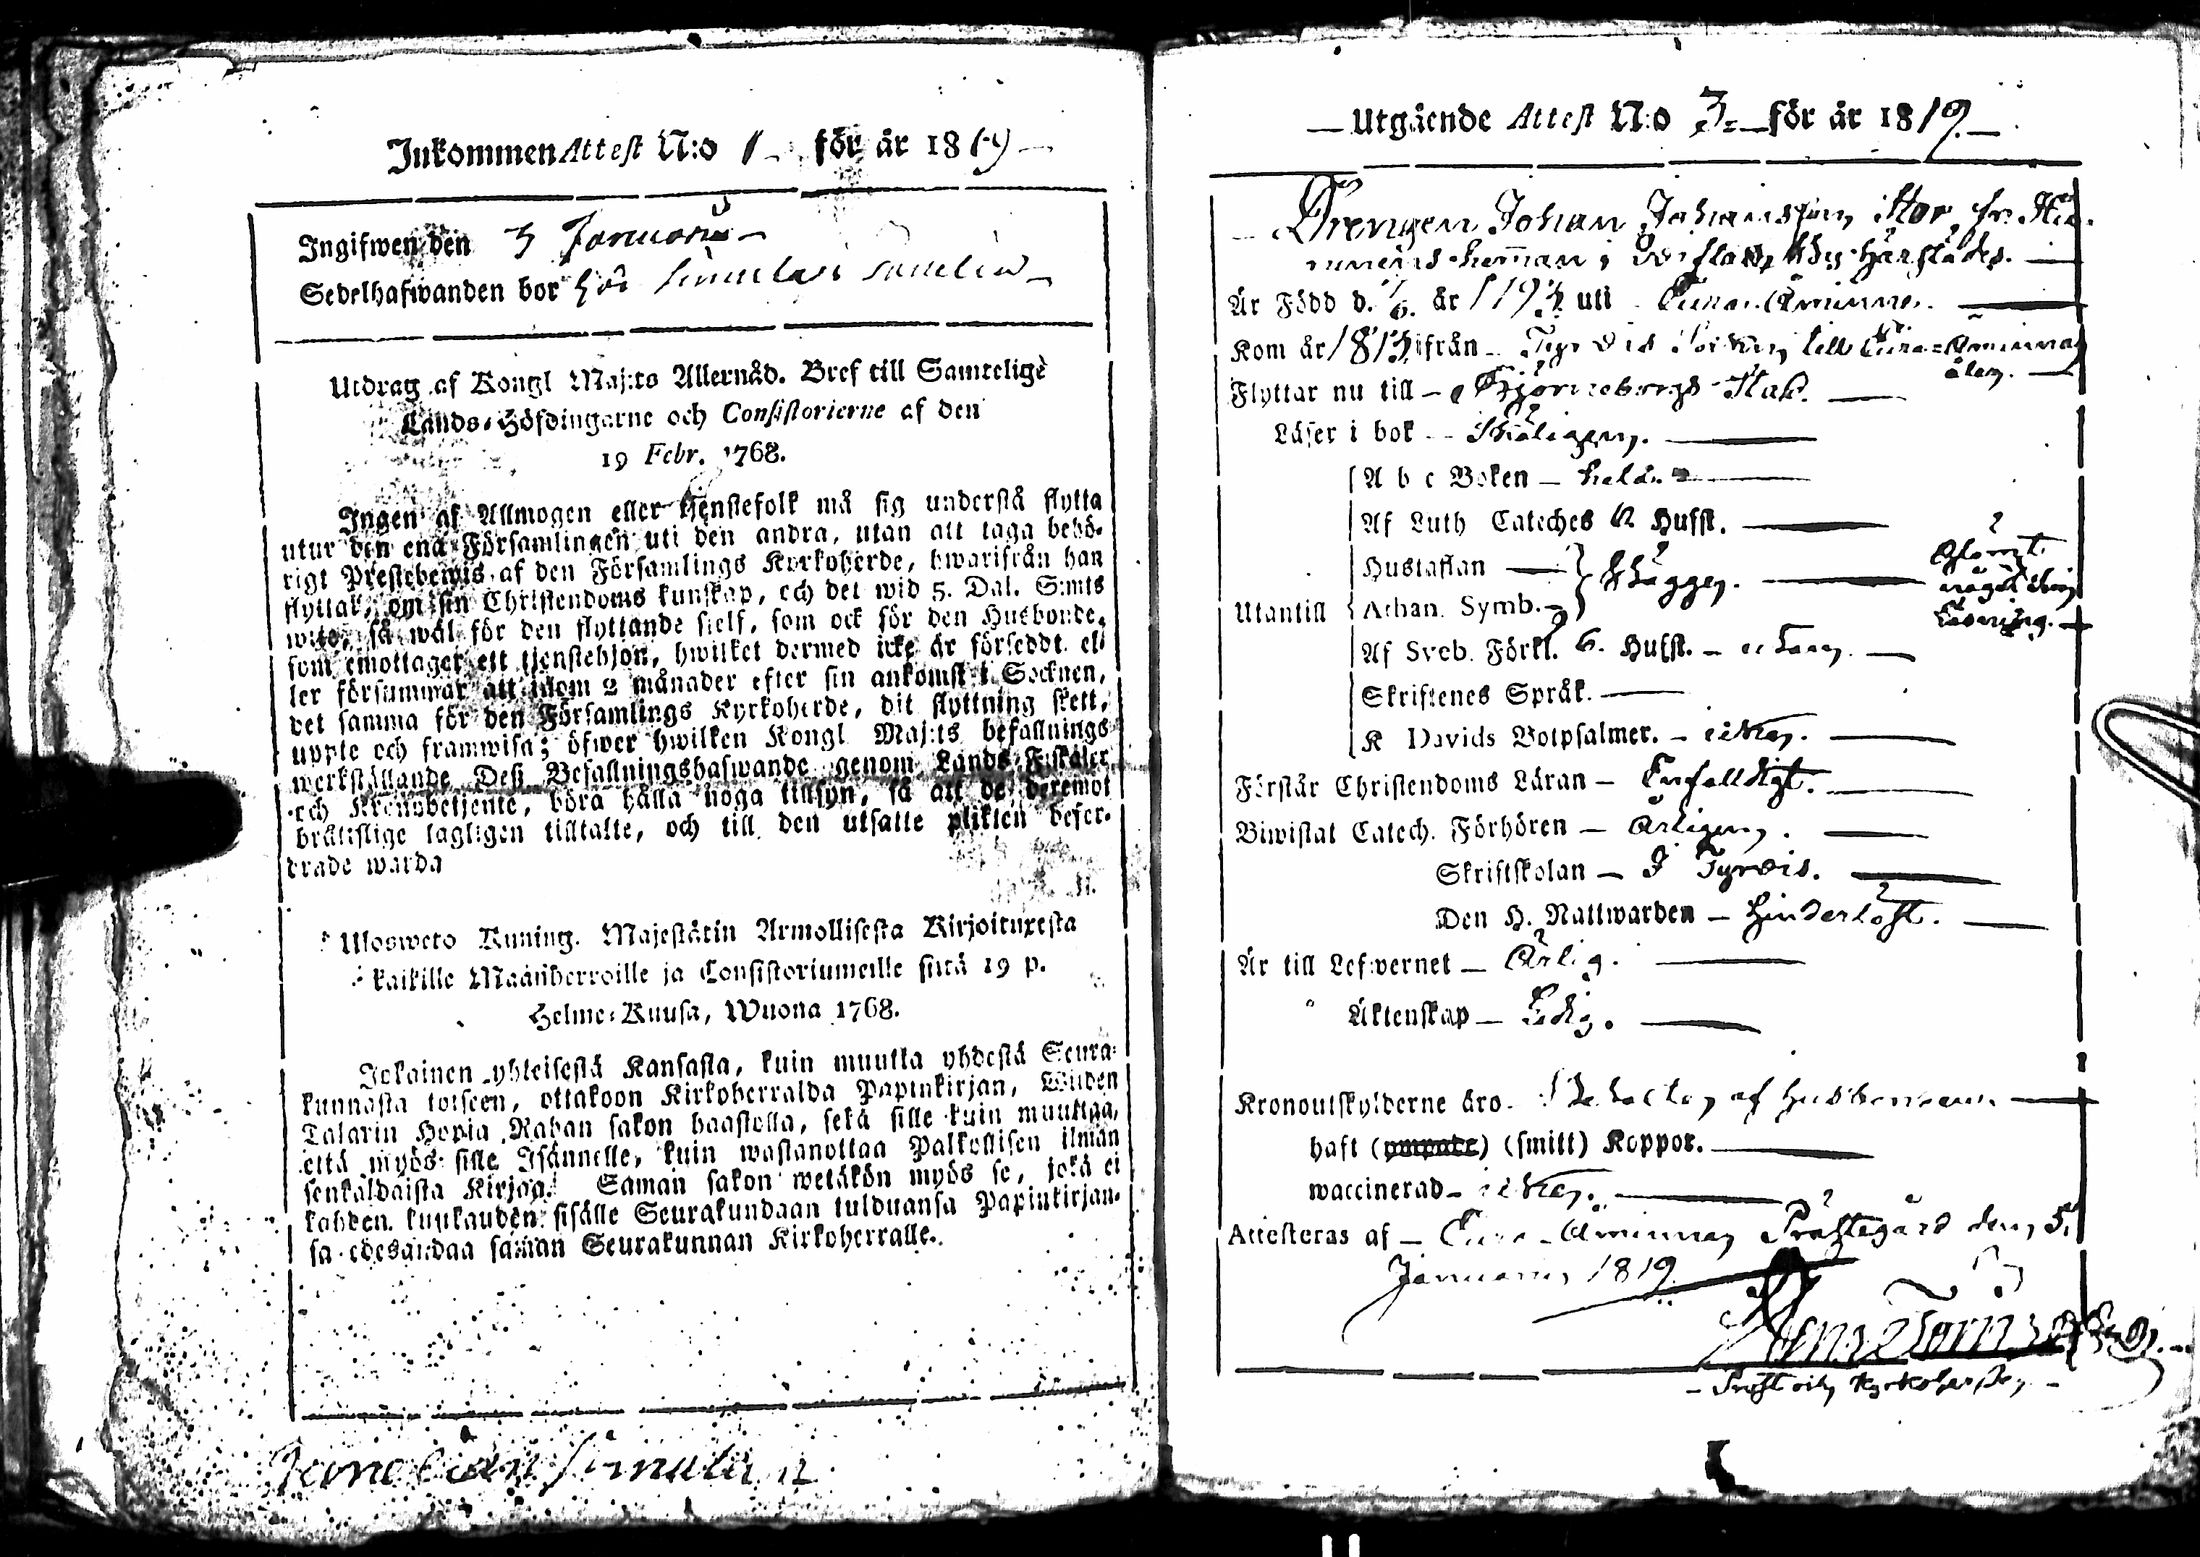 Inkommen Attest N:o 1 för år 1819
Ingifwen den 3 Januarii
Sedelhafwanden bor hos
Utdrag af Kongl Maj:ts Allernåd. Bref till Samtelige
Lands-Höfdingarne och Consistorierne af den
19 Febr. 1768.
Ingen af Allmogen eller tjenstefolk må sig understå flytta
utur den ena Församlingen uti den andra, utan att taga behö-
rigt Prestebewis af den Församlings Kyrkoherde, hwarifrån han
flyttar, om sin Christendoms kunskap, och det wid 5. Dal. S:mts
wite, så wäl för den flyttande sielf, som ock för den Husbonde,
som emottager ett tjenstehjon, hwilket dermed icke är försedt, el-
ler försummar att inom 2 månader efter sin ankomst i Socknen,
det samma för den Församlings Kyrkoherde, dit flyttning skett,
uppte och framwisa; öfwer hwilken Kongl Maj:ts befallnings
werkställande Deß Befallningshafwande genom Lands-Fiskaler
och Kronobetjente, böra hålla noga tillsyn, så att de deremot
brättslige lagligen tilltalte, och till den utsatte plikten befor-
drade warda
Ulosweto Kuning. Majestätin Armollisesta Kirjoituxesta
kaikille Maanherroille ja Consistoriumeille siitä 19 p.
Helme-Kuusa, Wuona 1768.
Jokainen yhteisestä Kansasta, kuin muutta yhdestä Seura-
kunnasta toiseen, ottakoon Kirkoherralda Papinkirjan, Wiiden
Talarin Hopia Rahan sakon haastolla, sekä sille kuin muuttaa,
että myös sille Isännelle, kuin wastanottaa Palkollisen ilman
senkaldaista Kirjaa. Saman sakon wetäkön myös se, joka ei
kahden kuukauden sisälle Seurakundaan tulduansa Papinkirjan-
sa edesandaa saman Seurakunnan Kirkoherralle.
Utgående Attest N:o 3 för år 1819
Drengen Johan Johansson Stor fr.
hemman i
Är Född d. 1/6. år 1793 uti Eura Åminne
Kom år 1813 ifrån Tyrvis Socken till Eura-Åminne
åter.
Flyttar nu till Björneborgs Stad.
Läser i bok Skäligen.
A b c Boken hela
Af Luth Cateches 6 Hufst.
Hustaflan
Utantill
Athan. Symb.
Begge.
Glömt
något
läsning.
Af Sveb. Förkl. 6. Hufst. utan.
Skriftenes Språk.
K Davids Botpsalmer.
Förstår Christendoms Läran Enfalldigt.
Biwistat Catech. Förhören Årligen.
Skriftskolan I Tyrvis.
Den H. Nattwarden Hinderlöst.
Är till Lefwernet Ärlig.
Äktenskap Ledig.
Kronoutskylderne äro af Husbonden
haft (ympate) (smitt) Koppor.
waccinerad
Attesteras af Eura-Åminne Prästegård den 5.
Januarii 1819
Prost och Kyrkoherde